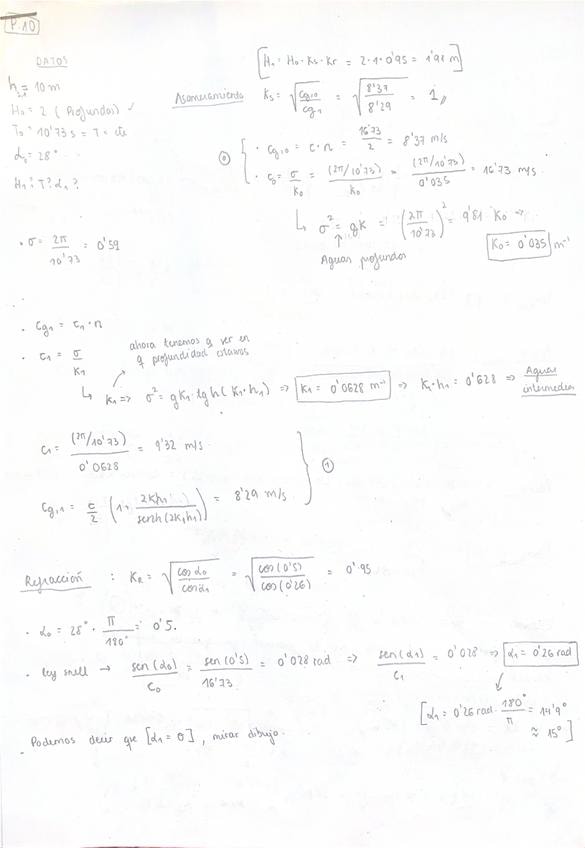 P.10
DATOS
h₁ = 10 m
H₀ = 2 (Profundas)
T₀ = 10'73 s = T = cte
α₀ = 28°
H₁? T? α₁?
[H₁ = H₀ · Ks · Kr = 2 · 1 · 0'95 = 1'91 m]
Asomeramiento Ks = √(cg,0 / cg1) = √(8'37 / 8'29) = 1
⓪ { · cg,0 = c · n = 16'73 / 2 = 8'37 m/s
· c₀ = σ / k₀ = (2π/10'73) / k₀ = (2π/10'73) / 0'035 = 16'73 m/s
↳ σ² = gk = (2π / 10'73)² = 9'81 K₀ ⇒
K₀ = 0'035 m⁻¹
Aguas profundas
· σ = 2π / 10'73 = 0'59
· cg₁ = c₁ · n
· c₁ = σ / K₁
ahora tenemos q ver en
q profundidad estamos
↳ K₁ ⇒ σ² = gK₁ · tgh(K₁ · h₁) ⇒ K₁ = 0'0628 m⁻¹ ⇒ K₁ · h₁ = 0'628 ⇒ Aguas intermedias
c₁ = (2π/10'73) / 0'0628 = 9'32 m/s
cg,1 = c / 2 (1 + 2K₁h₁ / senh(2K₁h₁)) = 8'29 m/s } ①
Refracción : KR = √(cos α₀ / cos α₁) = √(cos(0'5) / cos(0'26)) = 0'95
· α₀ = 28° · π / 180° = 0'5.
· ley snell → sen(α₀) / c₀ = sen(0'5) / 16'73 = 0'028 rad ⇒ sen(α₁) / c₁ = 0'028 ⇒ α₁ = 0'26 rad
[α₁ = 0'26 rad · 180° / π = 14'9°
≈ 15°]
· Podemos decir que [α₁ = 0], mirar dibujo.